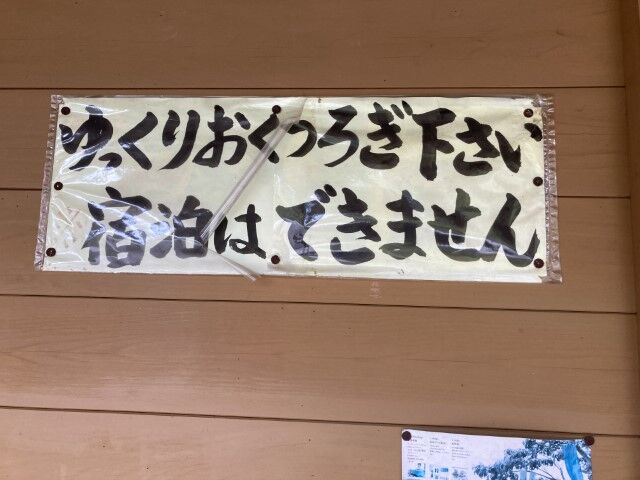 ゆっくりおくつろぎ下さい
宿泊はできません